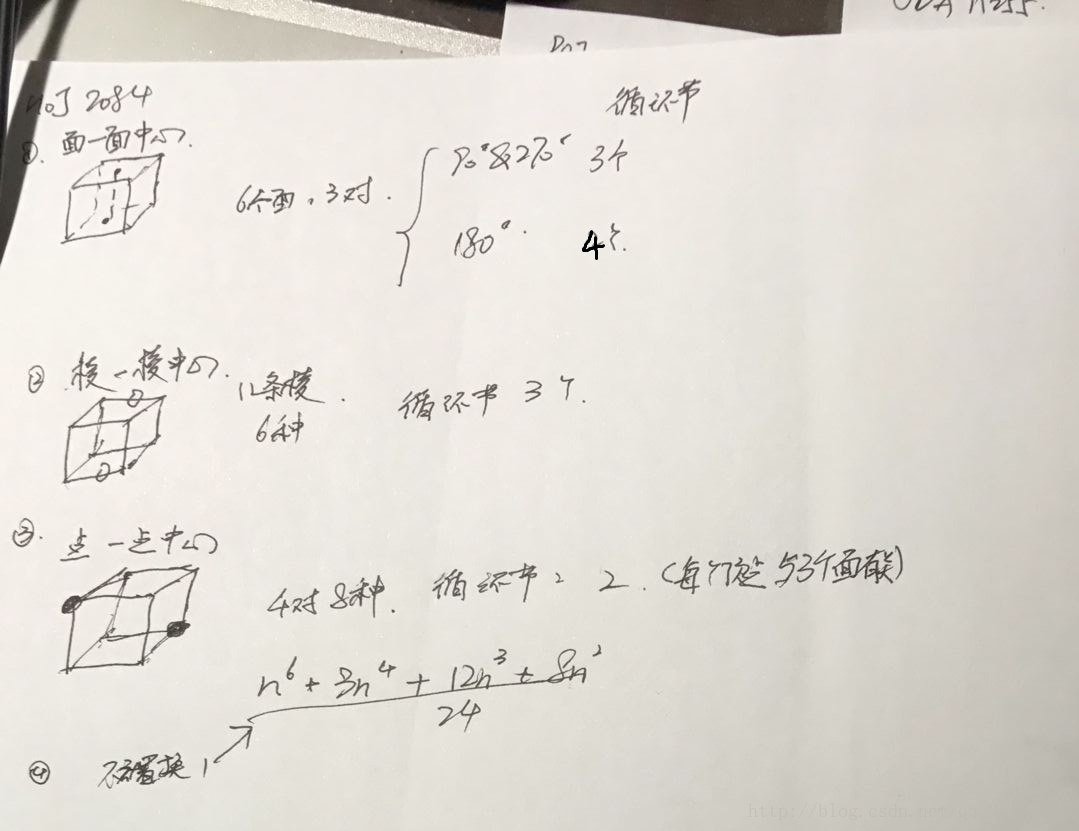 2084
循环节
①. 面一面中心.
6个面, 3对.
90°&270° 3个
180°. 4个.
② 棱一棱中心.
12条棱.
6种
循环节 3个.
③. 点一点中心
4对 8种. 循环节: 2. (每个顶点与3个面有关)
n⁶ + 3n⁴ + 12n³ + 8n²
24
④ 不置换 1
http://blog.csdn.net